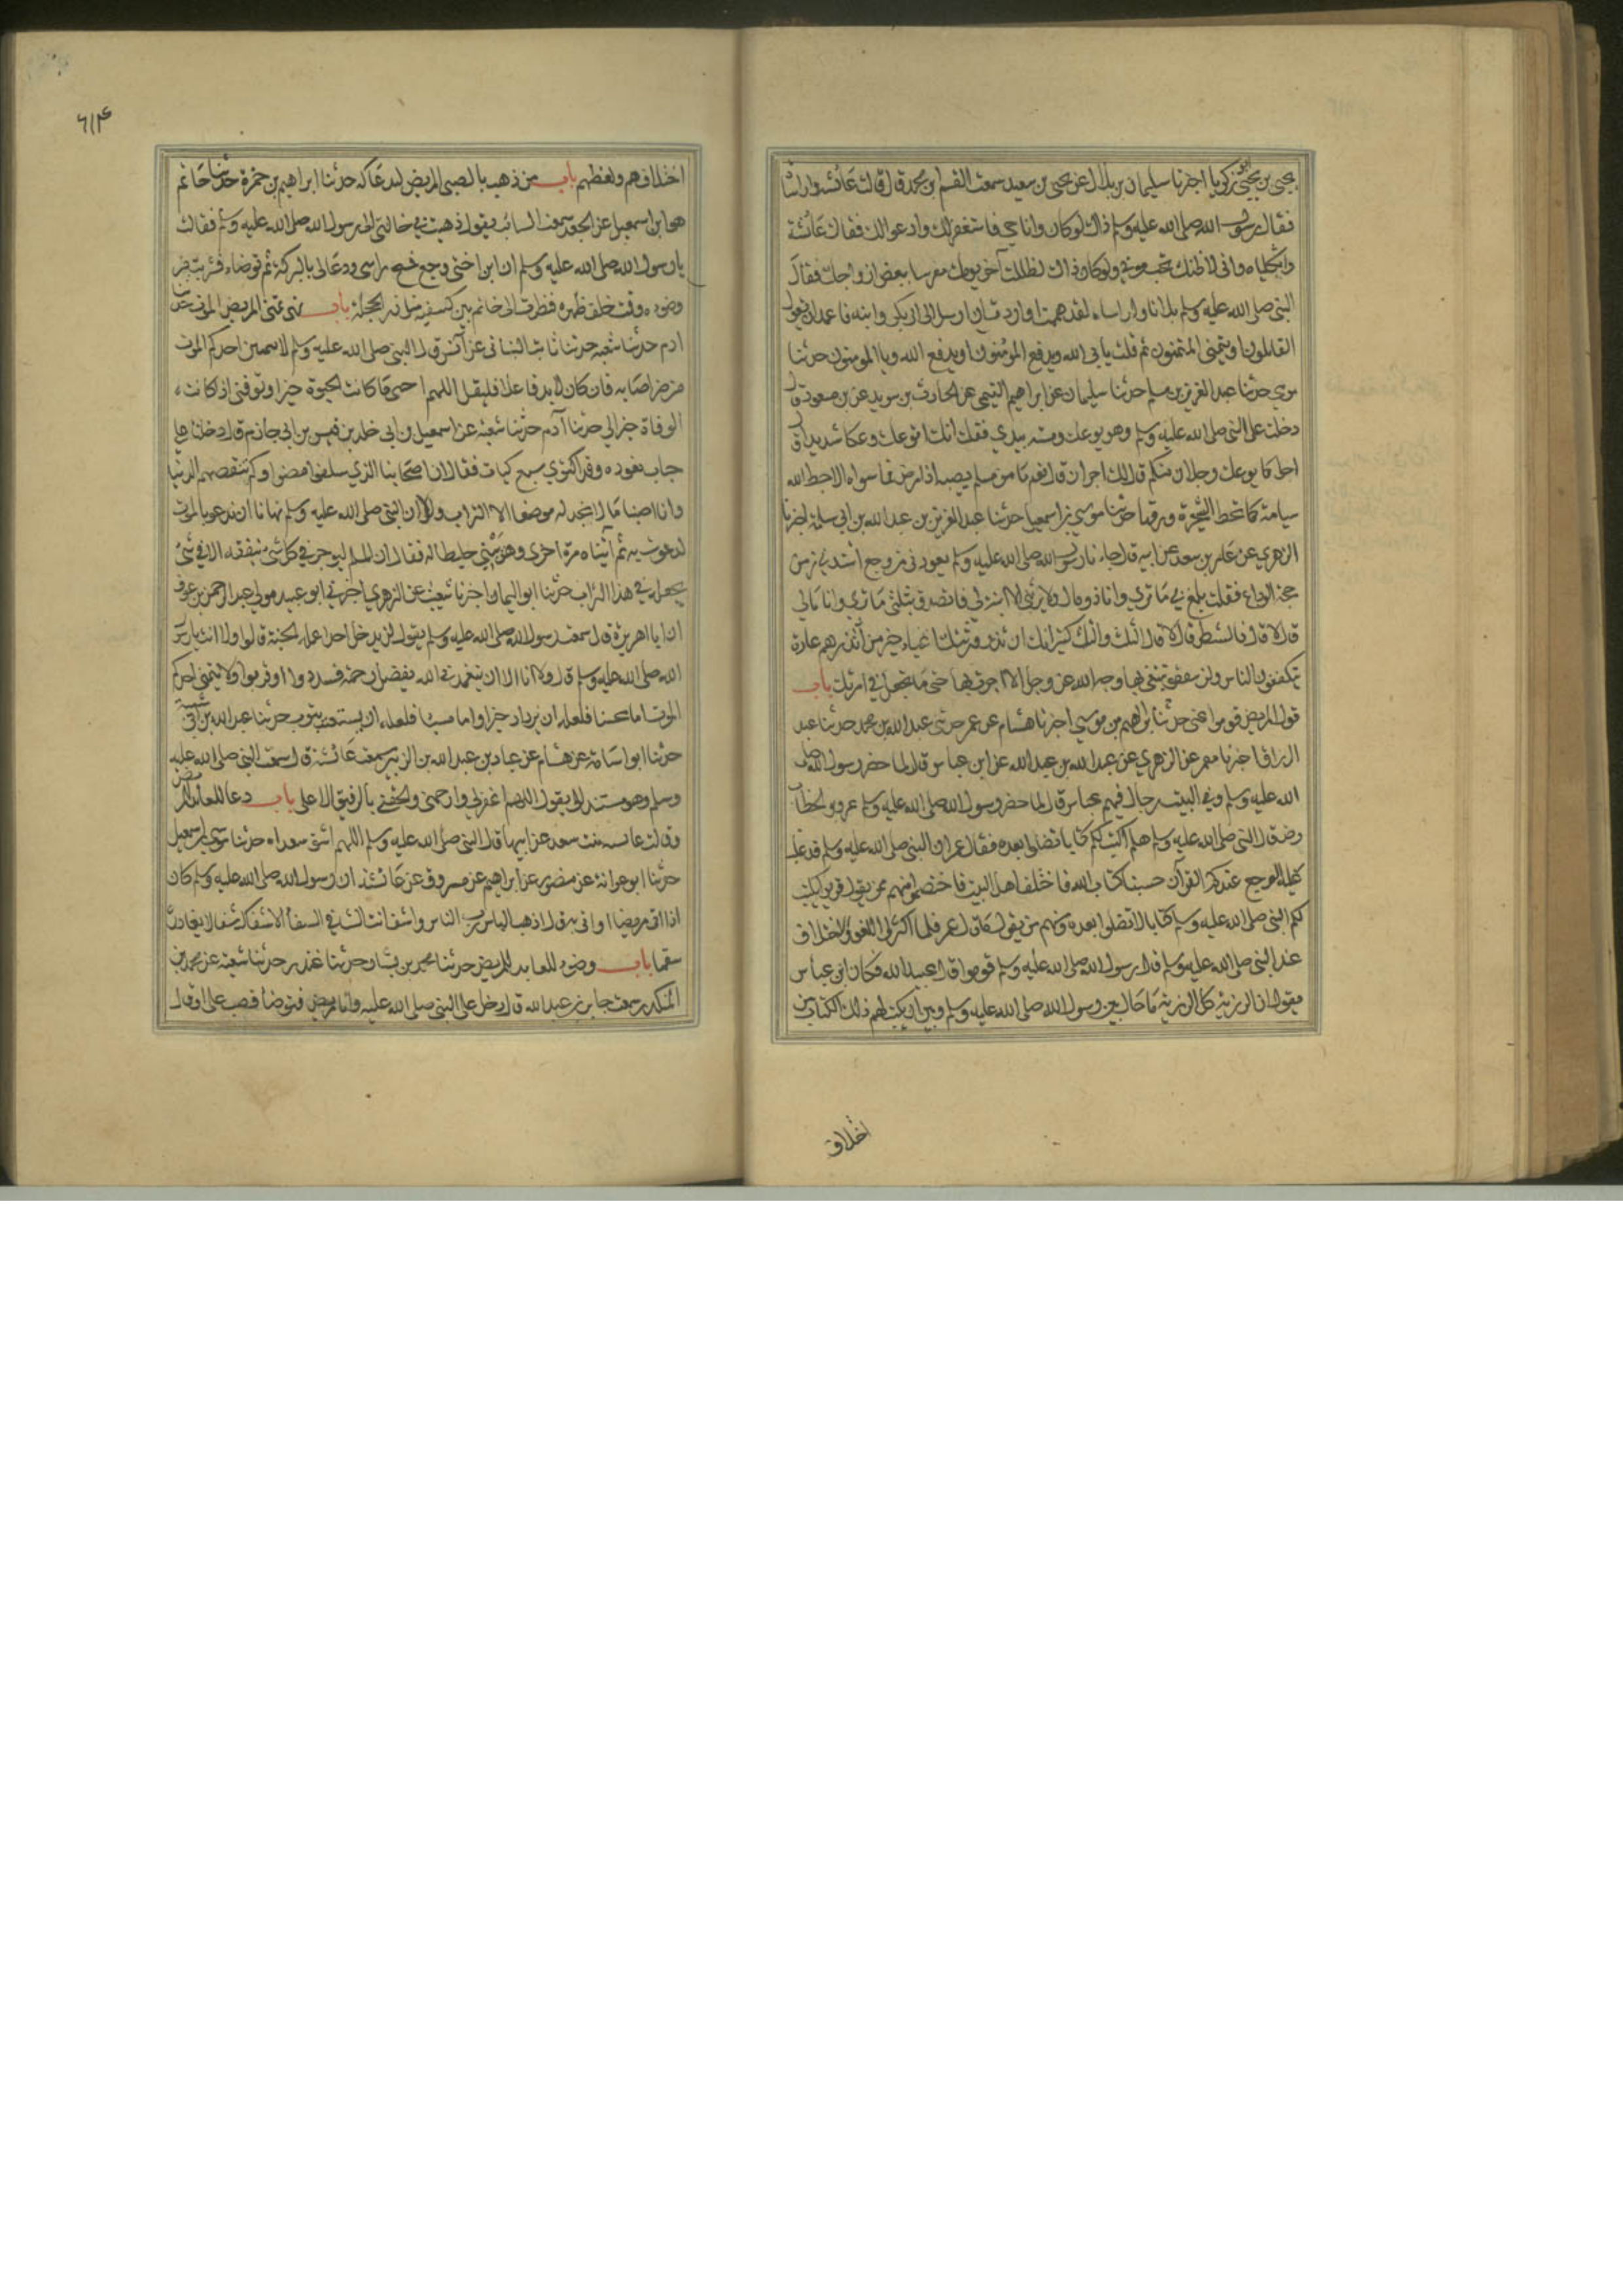 يحيى بن يحيى ابو زكريا اخبرنا سليمان بن بلال عن يحيى بن سعيد سمعت القسم بن محمد قال قالت عائشة واراساه
فقال رسول الله صلى الله عليه وسلم ذاك لو كان وانا حي فاستغفر لك وادعو لك فقالت عائشة
واثكلياه واني لاظنك تحب موتي ولو كان ذاك لظللت آخر يومك معرسا ببعض ازواجك فقال
النبي صلى الله عليه وسلم بل انا واراساه لقد هممت او اردت ان ارسل الى ابي بكر وابنه فاعهد ان يقول
القايلون او يتمنى المتمنون ثم قلت يابى الله ويدفع المؤمنون او يدفع الله ويابى المومنون حدثنا
موسى حدثنا عبد العزيز بن مسلم حدثنا سليمان عن ابراهيم التيمي عن الحارث بن سويد عن بن مسعود قال
دخلت على النبي صلى الله عليه وسلم وهو يوعك فمسته بيدي فقلت انك لتوعك وعكا شديدا قال
اجل كما يوعك رجلان منكم قال لك اجران قال نعم ما من مسلم يصيبه اذى مرض فما سواه الا حط الله
سياته كما تحط الشجرة ورقها حدثنا موسى بن اسمعيل حدثنا عبد العزيز بن عبد الله بن ابي سلمة اخبرنا
الزهري عن عامر بن سعد عن ابيه قال جاءنا رسول الله صلى الله عليه وسلم يعودني من وجع اشتد بي زمن
حجة الوداع فقلت بلغ بي ما ترى وانا ذو مال ولا يرثني الا ابنة لي فاتصدق بثلثي مالي
قال لا قال فالشطر قال لا قال الثلث والثلث كثير انك ان تذر ورثتك اغنياء خير من ان تذرهم عالة
يتكففون الناس ولن تنفق نفقة تبتغي بها وجه الله عز وجل الا اجرت بها حتى ما تجعل في امرتك باب
قول المريض قوموا عني حدثنا ابراهيم بن موسى اخبرنا هشام عن معمر حدثني عبد الله بن محمد حدثنا عبد
الرزاق اخبرنا معمر عن الزهري عن عبيد الله بن عبد الله عن ابن عباس قال لما حضر رسول الله صلى
الله عليه وسلم وفي البيت رجال فيهم عمر بن الخطاب
قال النبي صلى الله عليه وسلم هلم اكتب لكم كتابا لا تضلوا بعده فقال عمر ان النبي صلى الله عليه وسلم قد غلب
عليه الوجع عندكم القرآن حسبنا كتاب الله فاختلف اهل البيت فاختصموا منهم من يقول قربوا يكتب
لكم النبي صلى الله عليه وسلم كتابا لا تضلوا بعده ومنهم من يقول ما قال عمر فلما اكثروا اللغو والاختلاف
عند النبي صلى الله عليه وسلم قال رسول الله صلى الله عليه وسلم قوموا قال عبيد الله فكان ابن عباس
يقول ان الرزية كل الرزية ما حال بين رسول الله صلى الله عليه وسلم وبين ان يكتب لهم ذلك الكتاب من
اختلاف
٦١٤
اختلافهم ولغطهم باب من ذهب بالصبي المريض ليدعى له حدثنا ابراهيم بن حمزة حدثنا حاتم
هو ابن اسمعيل عن الجعد سمعت السائب يقول ذهبت بي خالتي الى رسول الله صلى الله عليه وسلم فقالت
يا رسول الله صلى الله عليه وسلم ان ابن اختي وجع فمسح راسي ودعا لي بالبركة ثم توضاء فشربت من
وضوءه وقمت خلف ظهره فنظرت الى خاتم بين كتفيه مثل زر الحجلة باب نهى تمني المريض الموت حدثنا
ادم حدثنا شعبة حدثنا ثابت البناني عن انس قال النبي صلى الله عليه وسلم لا يتمنين احدكم الموت
من ضر اصابه فان كان لا بد فاعلا فليقل اللهم احيني ما كانت الحيوة خيرا وتوفني اذا كانت
الوفاة خيرا لي حدثنا آدم حدثنا شعبة عن اسمعيل بن ابي خلد بن قيس بن ابي حازم قال دخلنا على
خباب نعوده وقد اكتوى سبع كيات فقال ان اصحابنا الذي سلفوا مضوا ولم تنقصهم الدنيا
وانا اصبنا ما لا نجد له موضعا الا التراب ولولا ان النبي صلى الله عليه وسلم نهانا ان ندعو بالموت
لدعوت به ثم اتيناه مرة اخرى وهو يبني حايطا له فقال ان المسلم ليوجر في كل شى ينفقه الا في شئ
يجعله في هذا التراب حدثنا ابو اليمان اخبرنا شعيب عن الزهري اخبرني ابو عبيد مولى عبد الرحمن بن عوف
ان ابا هريرة قال سمعت رسول الله صلى الله عليه وسلم يقول لن يدخل احدا عمله الجنة قالوا ولا انت يا رسول
الله صلى الله عليه وسلم قال ولا انا الا ان يتغمدني الله بفضل رحمة فسددوا وقربوا ولا يتمنى احدكم
الموت اما محسنا فلعله ان يزداد خيرا واما مسيئا فلعله ان يستعتب حدثنا عبد الله بن ابي شيبة
حدثنا ابو اسامة عن هشام عن عباد بن عبد الله بن الزبير سمعت عائشة قالت سمعت النبي صلى الله عليه
وسلم وهو مستند الي يقول اللهم اغفر لي وارحمني والحقني بالرفيق الاعلى باب دعا العايد للمريض
وقالت عائشة بنت سعد عن ابيها قال النبي صلى الله عليه وسلم اللهم اشف سعدا حدثنا موسى بن اسمعيل
حدثنا ابو عوانة عن منصور عن ابراهيم عن مسروق عن عائشة ان رسول الله صلى الله عليه وسلم كان
اذا اتى مريضا او اتي به قال اذهب الباس رب الناس واشف انت الشافي لا شفا الا شفاك شفا لا يغادر
سقما باب وضوء العايد للمريض حدثنا محمد بن بشار حدثنا غندر حدثنا شعبة عن محمد بن
المنكدر سمعت جابر بن عبد الله قال دخل علي النبي صلى الله عليه وانا مريض فتوضأ فصب علي او قال